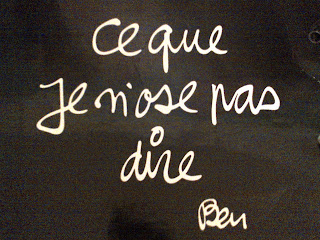 ce que
je n'ose pas
dire
Ben